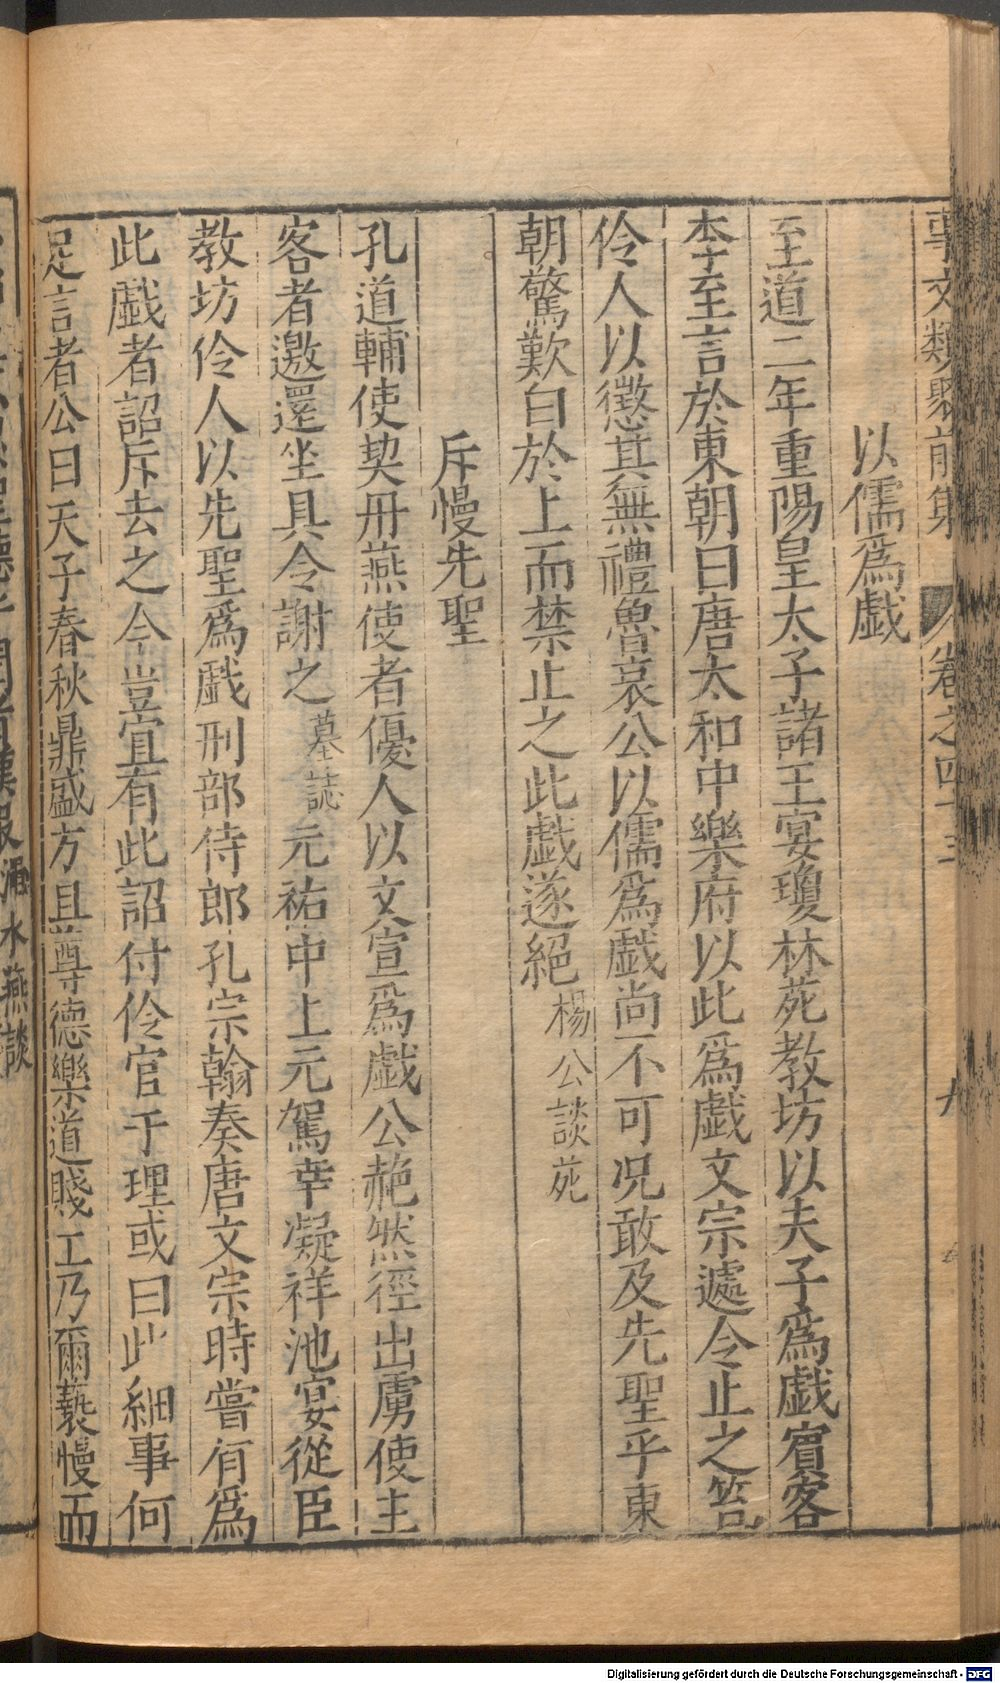 事文類聚前集 卷之四十三 九
以儒爲戯
至道二年重陽皇太子諸王宴瓊林苑教坊以夫子爲戯賔客
李至言於東朝曰唐太和中樂府以此爲戯文宗遽令止之笞
伶人以懲其無禮魯哀公以儒爲戯尚不可况敢及先聖乎東
朝驚歎白於上而禁止之此戯遂絕楊公談苑
斥慢先聖
孔道輔使契丹燕使者優人以文宣爲戯公艴然徑出虜使主
客者邀還坐具令謝之墓誌元祐中上元駕幸凝祥池宴從臣
教坊伶人以先聖爲戯刑部侍郎孔宗翰奏唐文宗時嘗有爲
此戯者詔斥去之今豈宜有此詔付伶官于理或曰此細事何
足言者公曰天子春秋鼎盛方且尊德樂道賤工乃爾䙝慢而
澠水燕談
Digitalisierung gefördert durch die Deutsche Forschungsgemeinschaft - DFG